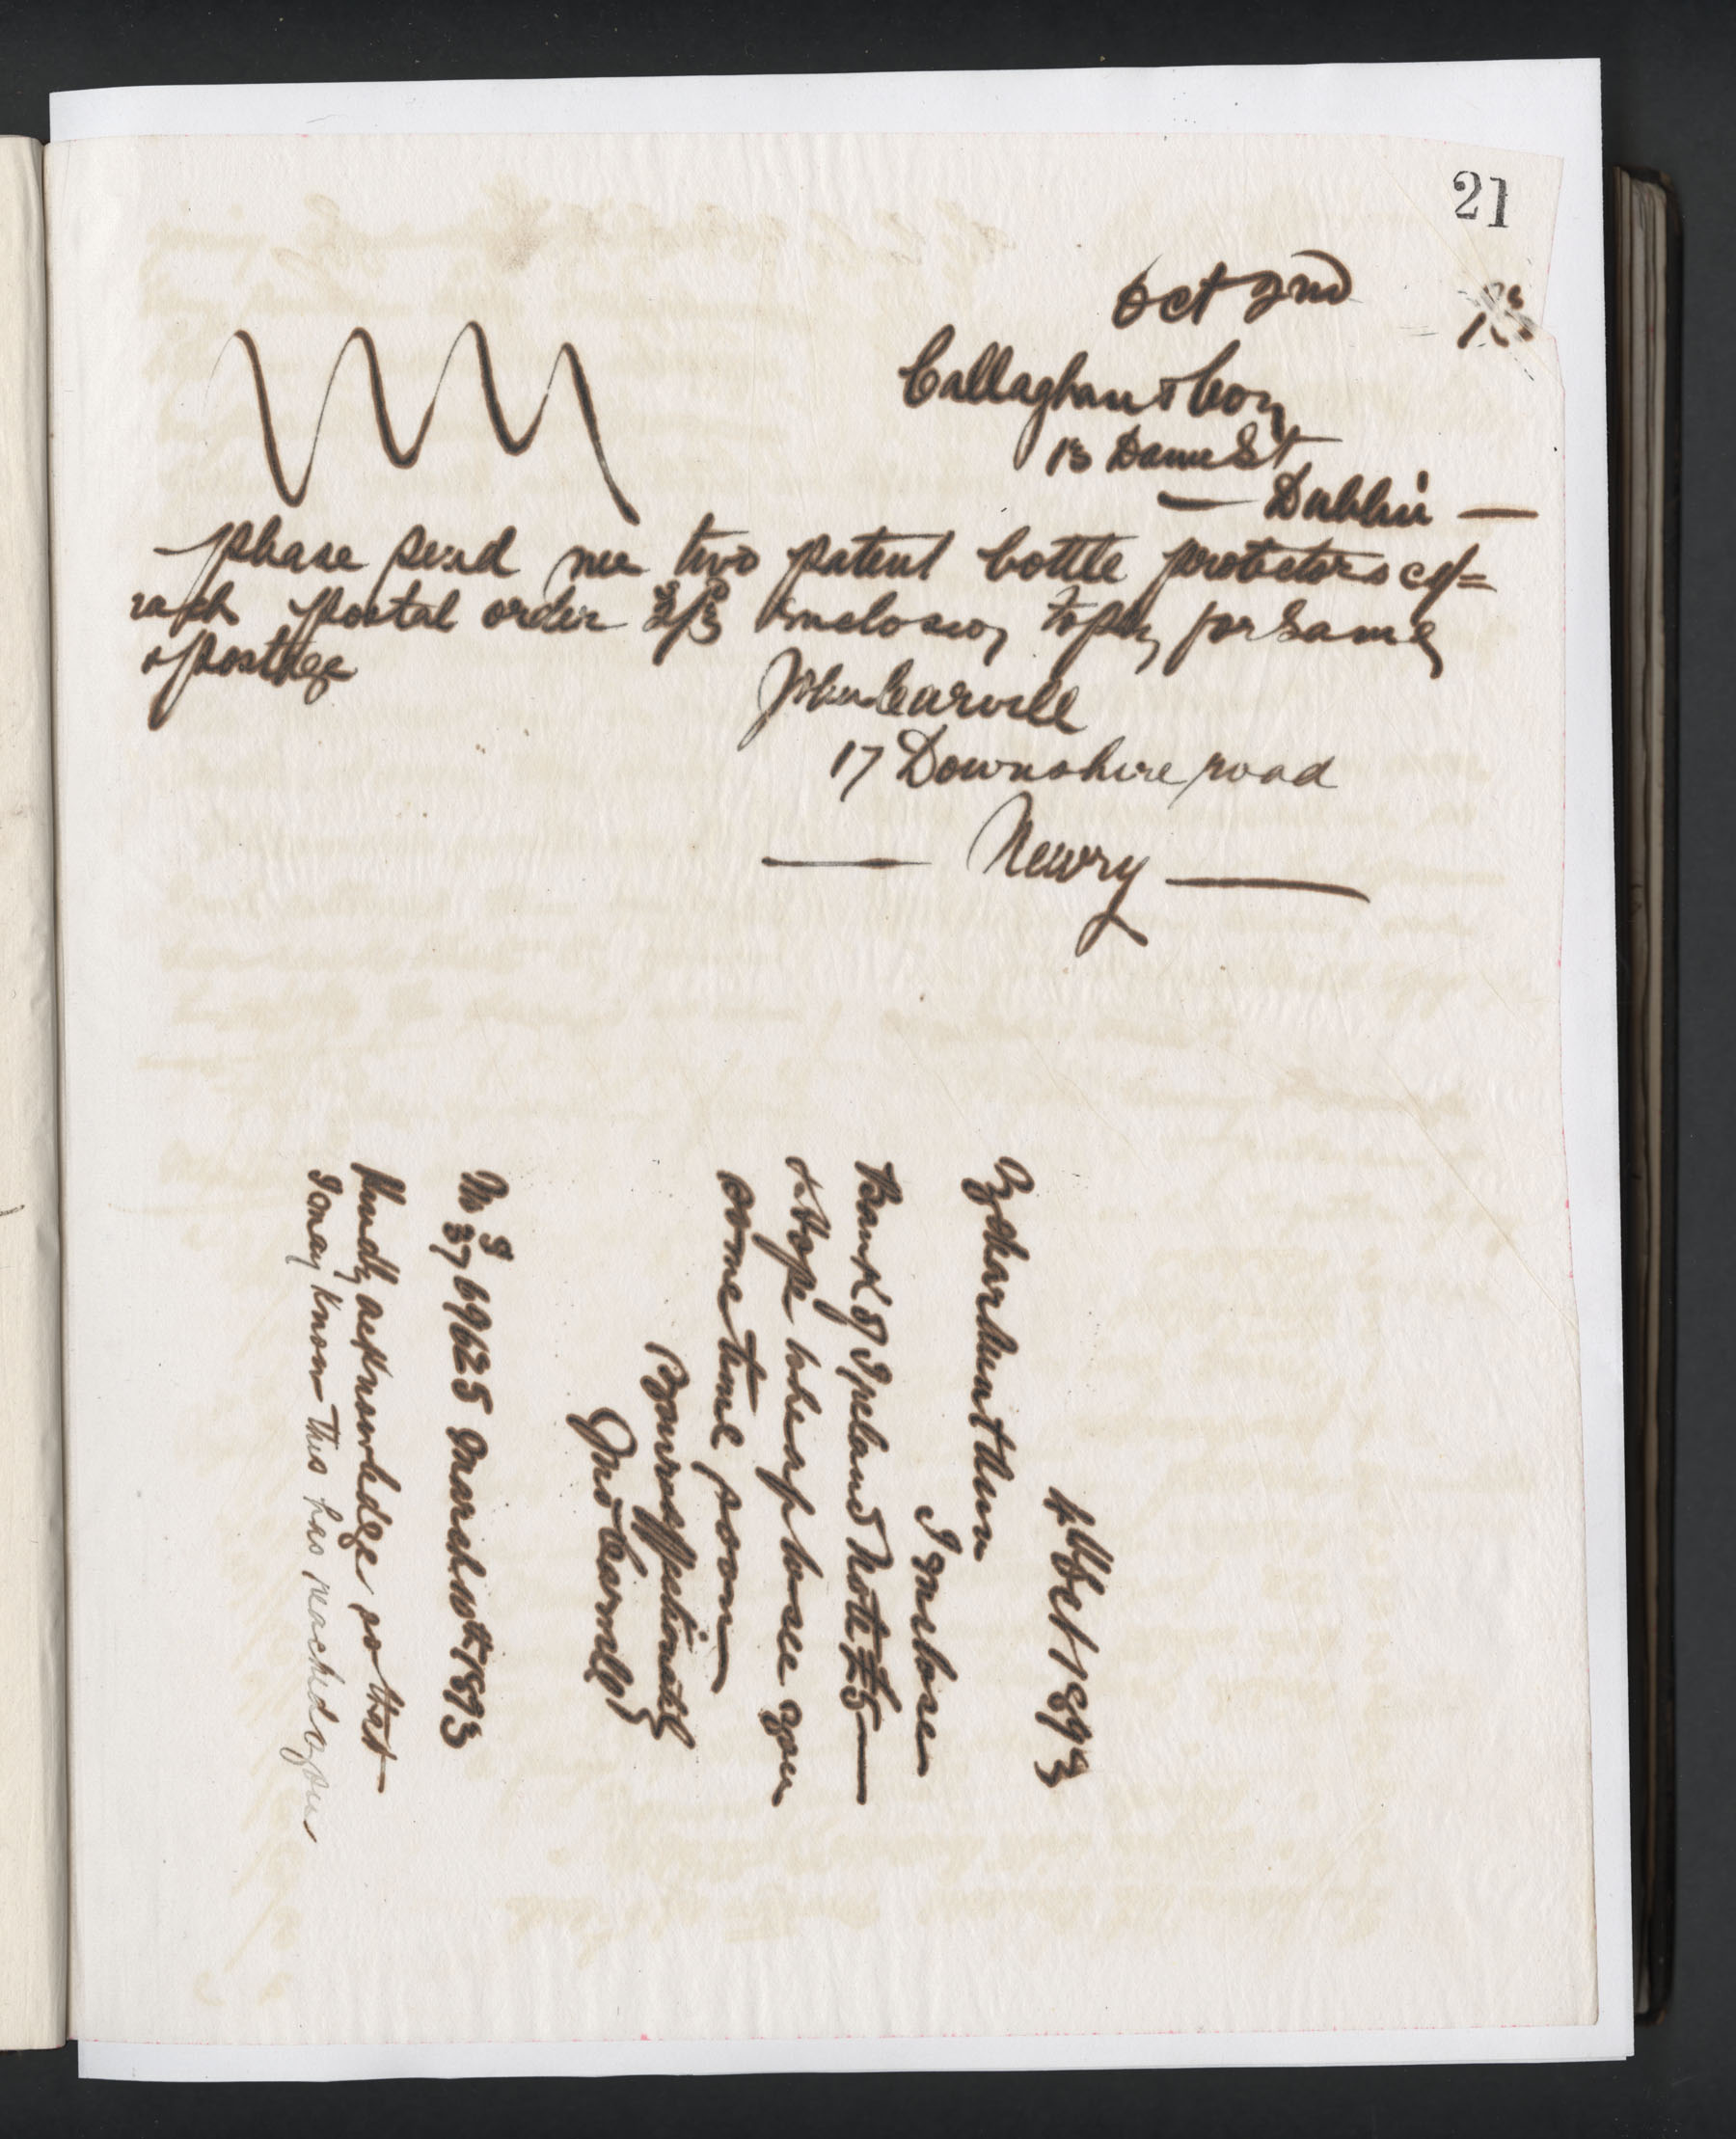 21
Oct 2nd
Callaghan & Coy
13 Dame St
— Dublin —
please send me two patent bottle protectors
each postal order 2/3 Inclosed to pay for same
& postage
John Carvill
17 Downshire road
— Newry —
4th Oct 1893
My dear Aunt Ann
I enclose
Bank of Ireland Note £5 —
& Hope to see you
some time soon
Your affectionately
Jno Carvill
No 37 69625 March 10th 1893
Kindly acknowledge so that
I may know this has reached you